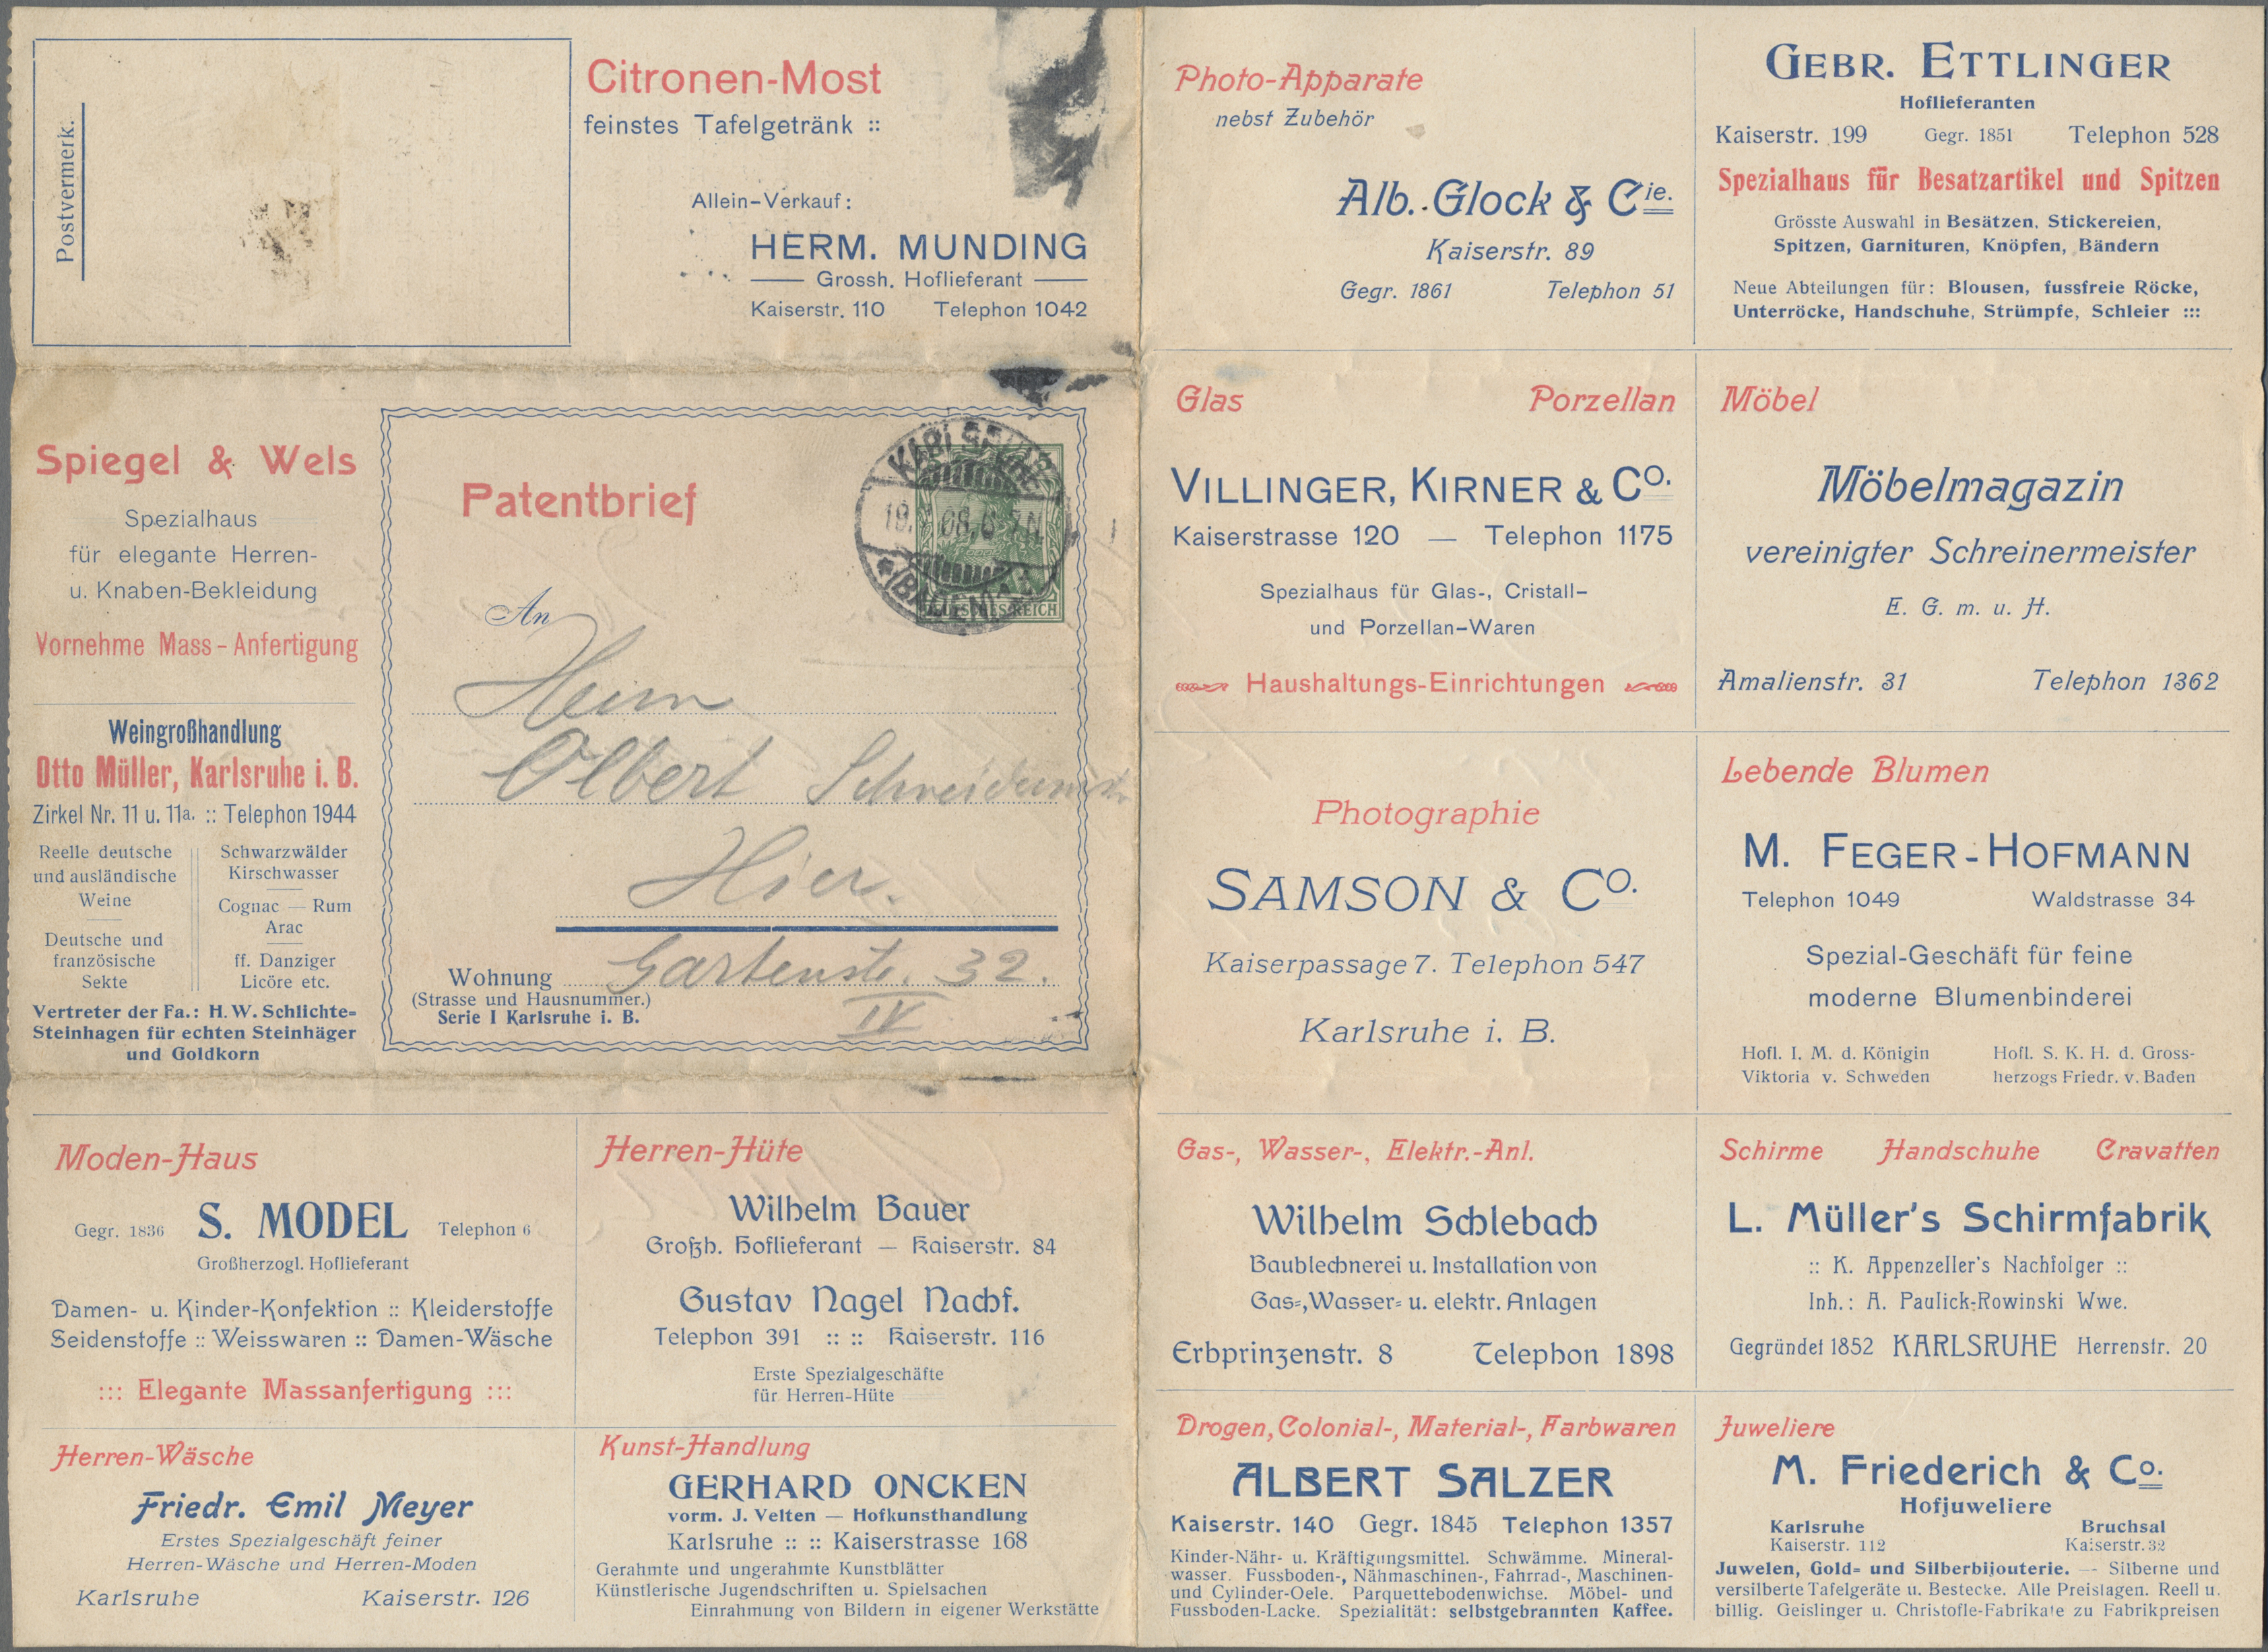 Postvermerk.
Citronen-Most
feinstes Tafelgetränk ::
Allein-Verkauf:
HERM. MUNDING
Grossh. Hoflieferant
Kaiserstr. 110 Telephon 1042
Spiegel & Wels
Spezialhaus
für elegante Herren-
u. Knaben-Bekleidung
Vornehme Mass-Anfertigung
Weingroßhandlung
Otto Müller, Karlsruhe i. B.
Zirkel Nr. 11 u. 11a. :: Telephon 1944
Reelle deutsche
und ausländische
Weine
Deutsche und
französische
Sekte
Schwarzwälder
Kirschwasser
Cognac — Rum
Arac
ff. Danziger
Licöre etc.
Vertreter der Fa.: H. W. Schlichte-
Steinhagen für echten Steinhäger
und Goldkorn
Patentbrief
KARLSRUHE
19. 08. 6-7N
*(BADEN)
DEUTSCHES REICH
An
Herrn
Albert
Hier.
Wohnung Gartenstr. 32.
(Strasse und Hausnummer.)
IV
Serie I Karlsruhe i. B.
Moden-Haus
Gegr. 1836 S. MODEL Telephon 6
Großherzogl. Hoflieferant
Damen- u. Kinder-Konfektion :: Kleiderstoffe
Seidenstoffe :: Weisswaren :: Damen-Wäsche
::: Elegante Massanfertigung :::
Herren-Hüte
Wilhelm Bauer
Großh. Hoflieferant — Kaiserstr. 84
Gustav Nagel Nachf.
Telephon 391 :: :: Kaiserstr. 116
Erste Spezialgeschäfte
für Herren-Hüte
Herren-Wäsche
Friedr. Emil Meyer
Erstes Spezialgeschäft feiner
Herren-Wäsche und Herren-Moden
Karlsruhe Kaiserstr. 126
Kunst-Handlung
GERHARD ONCKEN
vorm. J. Velten — Hofkunsthandlung
Karlsruhe :: :: Kaiserstrasse 168
Gerahmte und ungerahmte Kunstblätter
Künstlerische Jugendschriften u. Spielsachen
Einrahmung von Bildern in eigener Werkstätte
Photo-Apparate
nebst Zubehör
Alb. Glock & Cie.
Kaiserstr. 89
Gegr. 1861 Telephon 51
GEBR. ETTLINGER
Hoflieferanten
Kaiserstr. 199 Gegr. 1851 Telephon 528
Spezialhaus für Besatzartikel und Spitzen
Grösste Auswahl in Besätzen, Stickereien,
Spitzen, Garnituren, Knöpfen, Bändern
Neue Abteilungen für: Blousen, fussfreie Röcke,
Unterröcke, Handschuhe, Strümpfe, Schleier :::
Glas Porzellan
VILLINGER, KIRNER & CO.
Kaiserstrasse 120 — Telephon 1175
Spezialhaus für Glas-, Cristall-
und Porzellan-Waren
Haushaltungs-Einrichtungen
Möbel
Möbelmagazin
vereinigter Schreinermeister
E. G. m. u. H.
Amalienstr. 31 Telephon 1362
Photographie
SAMSON & CO.
Kaiserpassage 7. Telephon 547
Karlsruhe i. B.
Lebende Blumen
M. FEGER-HOFMANN
Telephon 1049 Waldstrasse 34
Spezial-Geschäft für feine
moderne Blumenbinderei
Hofl. I. M. d. Königin
Viktoria v. Schweden
Hofl. S. K. H. d. Gross-
herzogs Friedr. v. Baden
Gas-, Wasser-, Elektr.-Anl.
Wilhelm Schlebach
Baublechnerei u. Installation von
Gas-, Wasser- u. elektr. Anlagen
Erbprinzenstr. 8 Telephon 1898
Schirme Handschuhe Cravatten
L. Müller's Schirmfabrik
:: K. Appenzeller's Nachfolger ::
Inh.: A. Paulick-Rowinski Wwe.
Gegründet 1852 KARLSRUHE Herrenstr. 20
Drogen, Colonial-, Material-, Farbwaren
ALBERT SALZER
Kaiserstr. 140 Gegr. 1845 Telephon 1357
Kinder-Nähr- u. Kräftigungsmittel. Schwämme. Mineral-
wasser. Fussboden-, Nähmaschinen-, Fahrrad-, Maschinen-
und Cylinder-Oele. Parquettebodenwichse. Möbel- und
Fussboden-Lacke. Spezialität: selbstgebrannten Kaffee.
Juweliere
M. Friederich & Co.
Hofjuweliere
Karlsruhe Bruchsal
Kaiserstr. 112 Kaiserstr. 32
Juwelen, Gold- und Silberbijouterie. — Silberne und
versilberte Tafelgeräte u. Bestecke. Alle Preislagen. Reell u.
billig. Geislinger u. Christofle-Fabrikate zu Fabrikpreisen